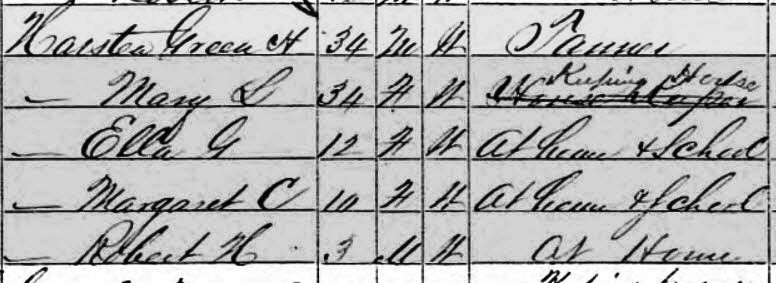 Harsten Green H 34 M W Farmer
— Mary L 34 F W Keeping House
— Ella G 12 F W At home & School
— Margaret C 10 F W At home & School
— Robert H 3 M W At Home